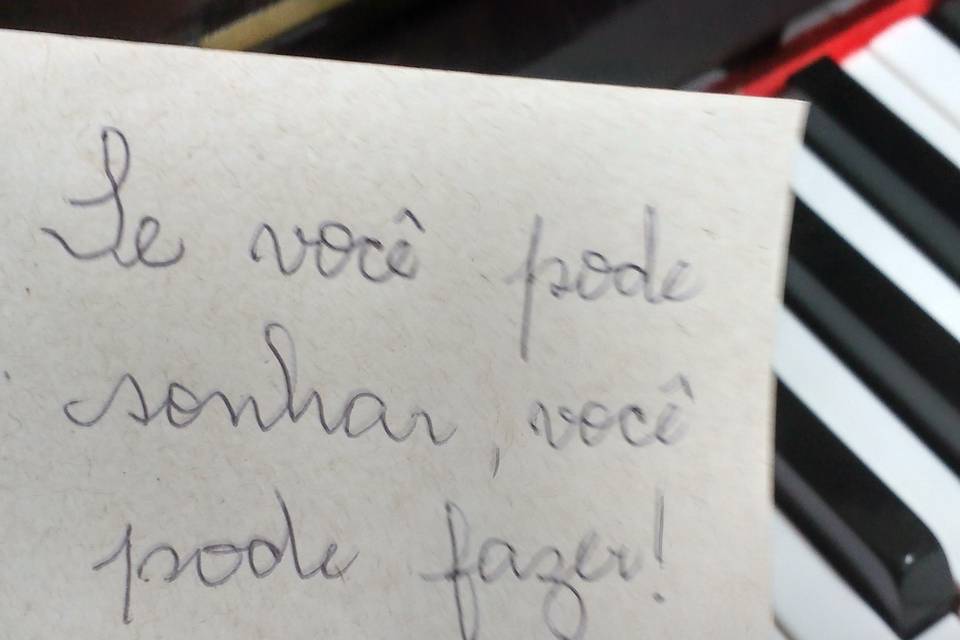 Se você pode
sonhar, você
pode fazer!